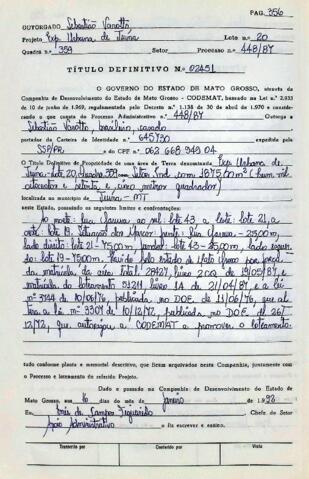 PAG. 356
OUTORGADO Sebastião Vanotto
Projeto Exp. Urbana de Juína Lote n.º 20
Quadra n.º 359 Setor Processo n.º 448/87
TÍTULO DEFINITIVO N.º 02451
O GOVERNO DO ESTADO DE MATO GROSSO, através da
Companhia de Desenvolvimento do Estado de Mato Grosso - CODEMAT, baseado na Lei n.º 2.033
10 de junho de 1969, regulamentado pelo Decreto n.º 1.138 de 30 de abril de 1.970 e considerando
o que consta do Processo Administrativo n.º 448/87 Outorga a
Sebastião Vanotto, brasileiro, casado
portador da Carteira de Identidade n.º 645730 expedida pela
SSP/PR e do CPF n.º 062 668 949 04
O Título Definitivo de Propriedade de uma área de Terra denominada Exp. Urbana de
Juína - Lote 20, Quadra 359 - Setor Ind com 1875,00m² (hum mil
oitocentos e setenta e cinco metros quadrados)
localizada no município de Juína - MT
neste Estado, possuindo os seguintes limites e confrontações:
Ao norte: rua ao sul: lote 43 a leste: lote 21, a
lote 19. frente: Rua 25,00m,
lado direito: lote 21 - 75,00m fundos: lote 43 - 25,00m, lado esquerdo:
lote 19 - 75,00m. pelo Estado de Mato Grosso
da matrícula da área total: 28427, livro 2CQ de 19/05/87, e
matrícula do loteamento 51211 livro 1A de 21/04/87 e a lei
nº 3744 de 10/06/76, publicada no DOE de 11/06/76, que al
tera a lei nº 3307 de 10/12/72, publicada no DOE de 26/
12/72, que autorizou a CODEMAT a promover o loteamento.
tudo conforme planta e memorial descritivo, que ficam arquivados nesta Companhia, juntamente com
o Processo e loteamento do referido Projeto.
Dado e passado na Companhia de Desenvolvimento do Estado de
Mato Grosso, aos 16 dias do mês de janeiro de 19
Eu, Inês de Campos Figueiredo Chefe do Setor
Apoio Administrativo o fiz escrever e assino.
Transcrito por Conferido por Visto